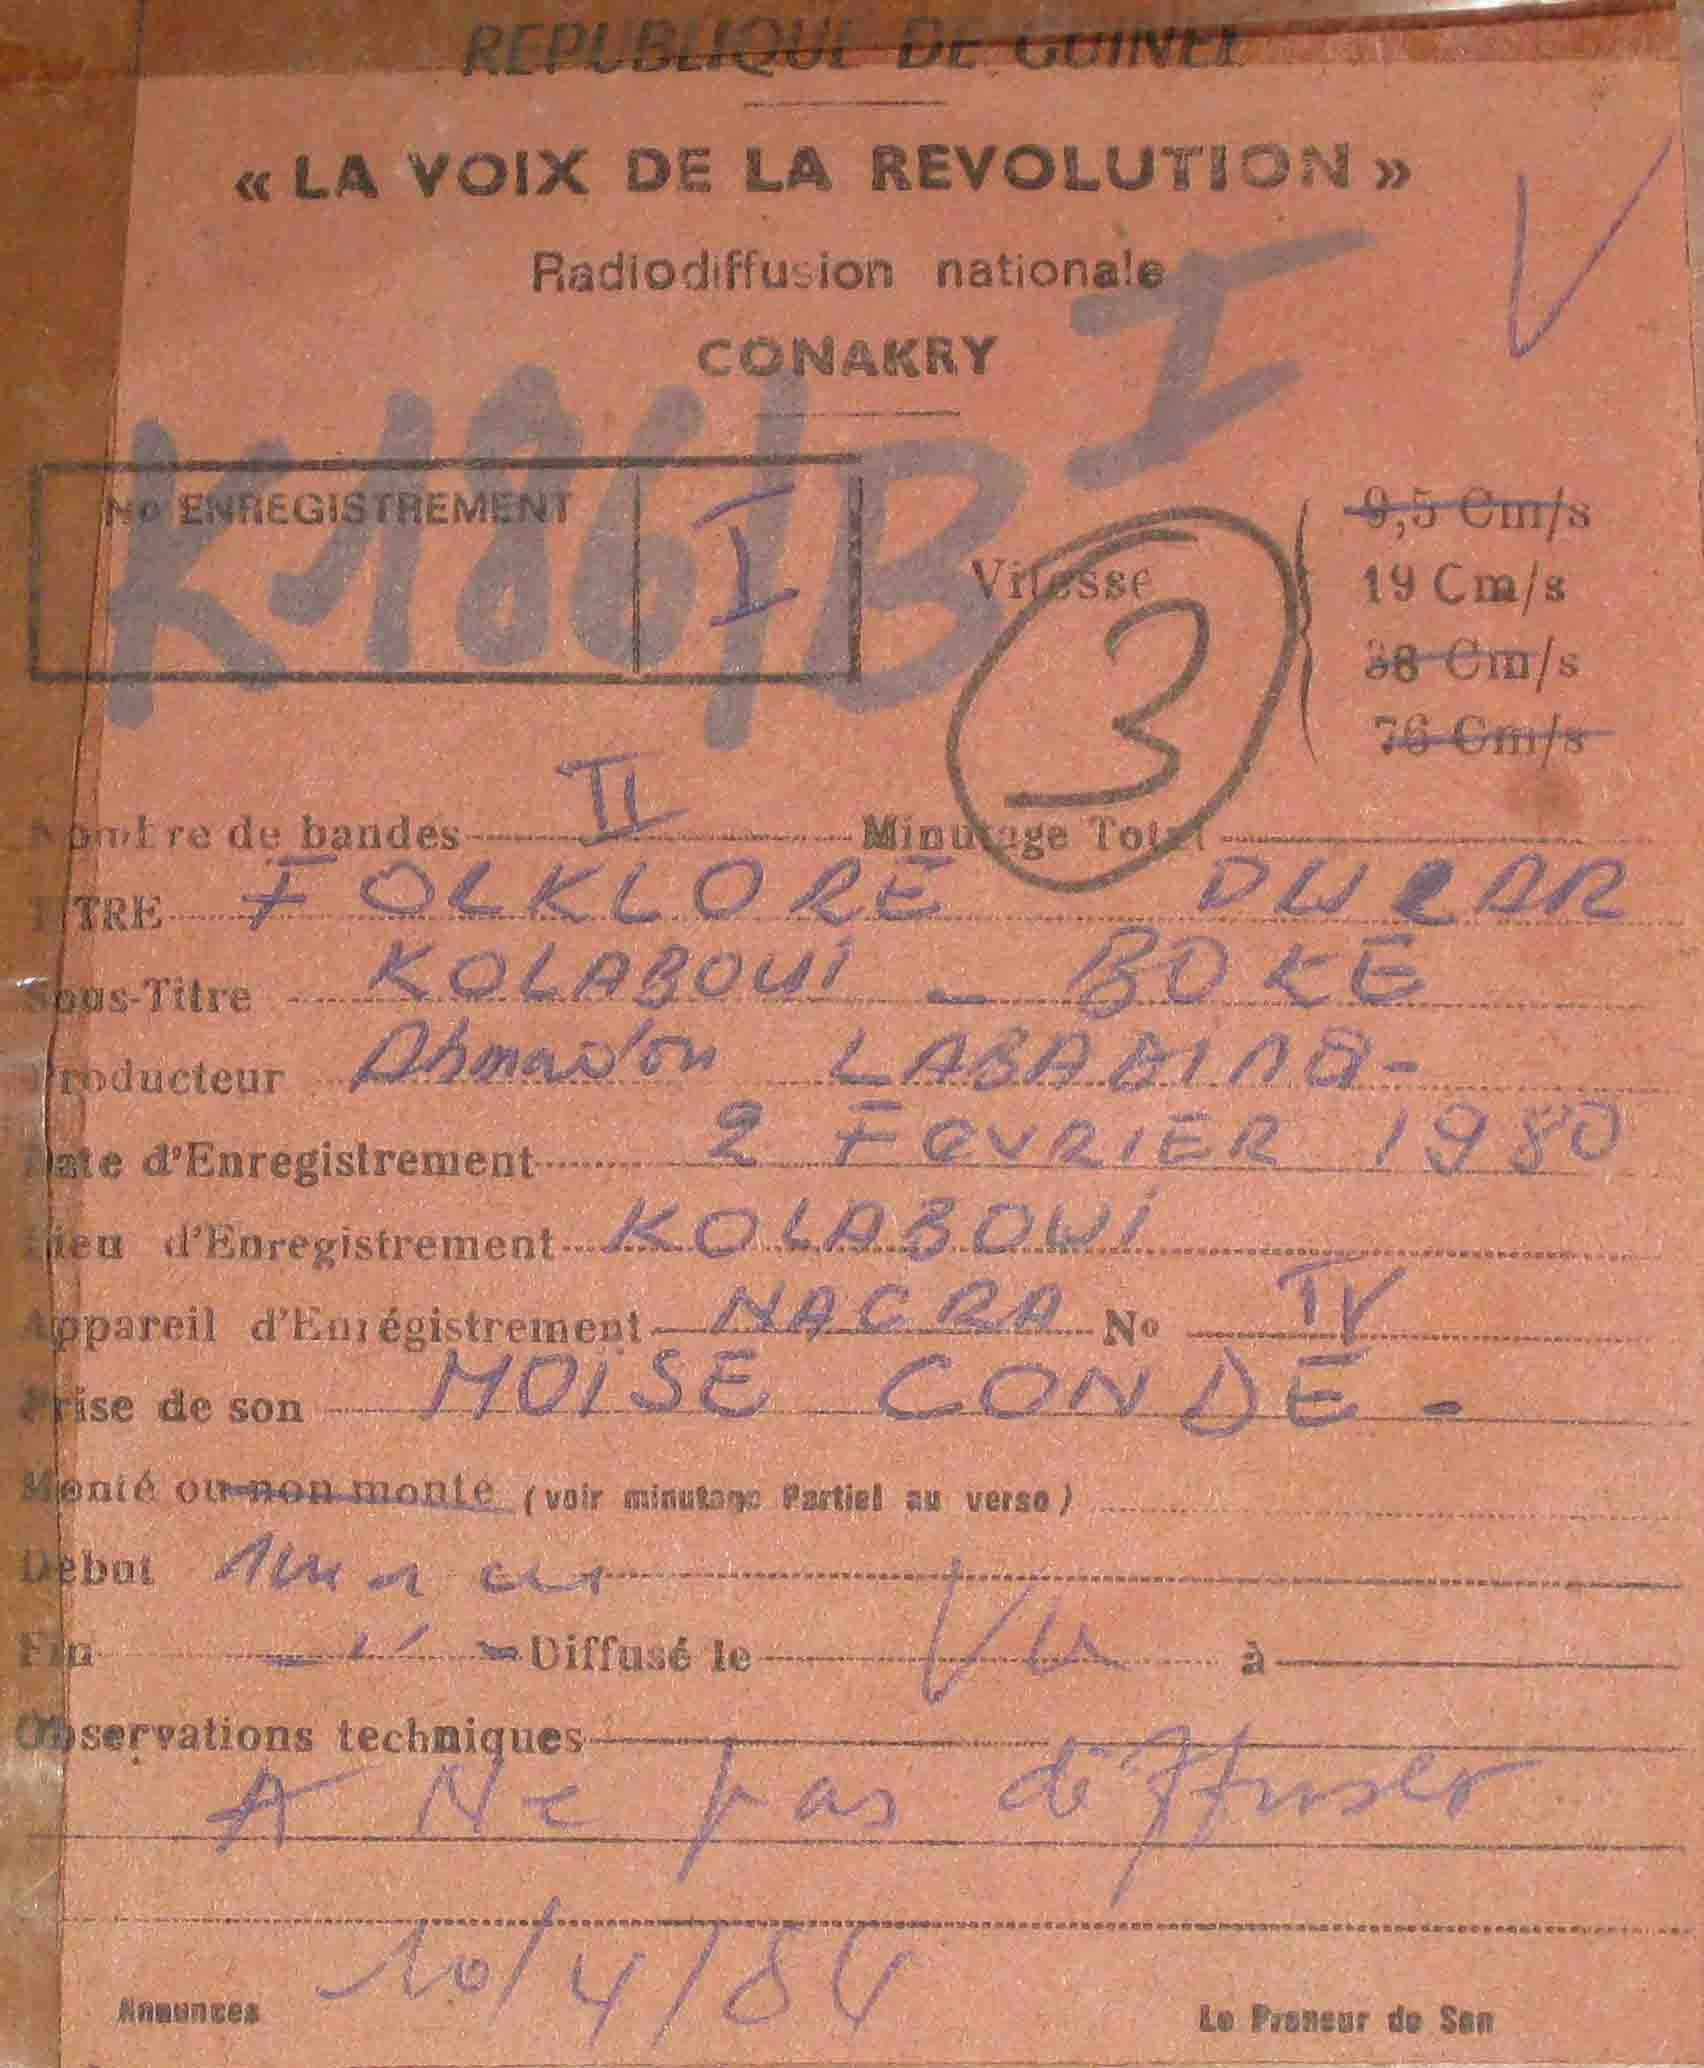 REPUBLIQUE DE GUINEE
« LA VOIX DE LA REVOLUTION »
Radiodiffusion nationale
CONAKRY
K186/B I
No ENREGISTREMENT I
Vitesse
3
9,5 Cm/s
19 Cm/s
38 Cm/s
76 Cm/s
Nombre de bandes II Minutage Total
TITRE FOLKLORE
Sous-Titre KOLABOUI - BOKE
Producteur Ahmadou
Date d'Enregistrement 2 FEVRIER 1980
Lieu d'Enregistrement KOLABOUI
Appareil d'Enrégistrement NAGRA No IV
Prise de son MOISE CONDE -
Monté ou non monté (voir minutage Partiel au verso)
Debut
Fin Diffusé le Vu à
Observations techniques
A Ne pas diffuser
10/4/84
Annonces Le Preneur de Son